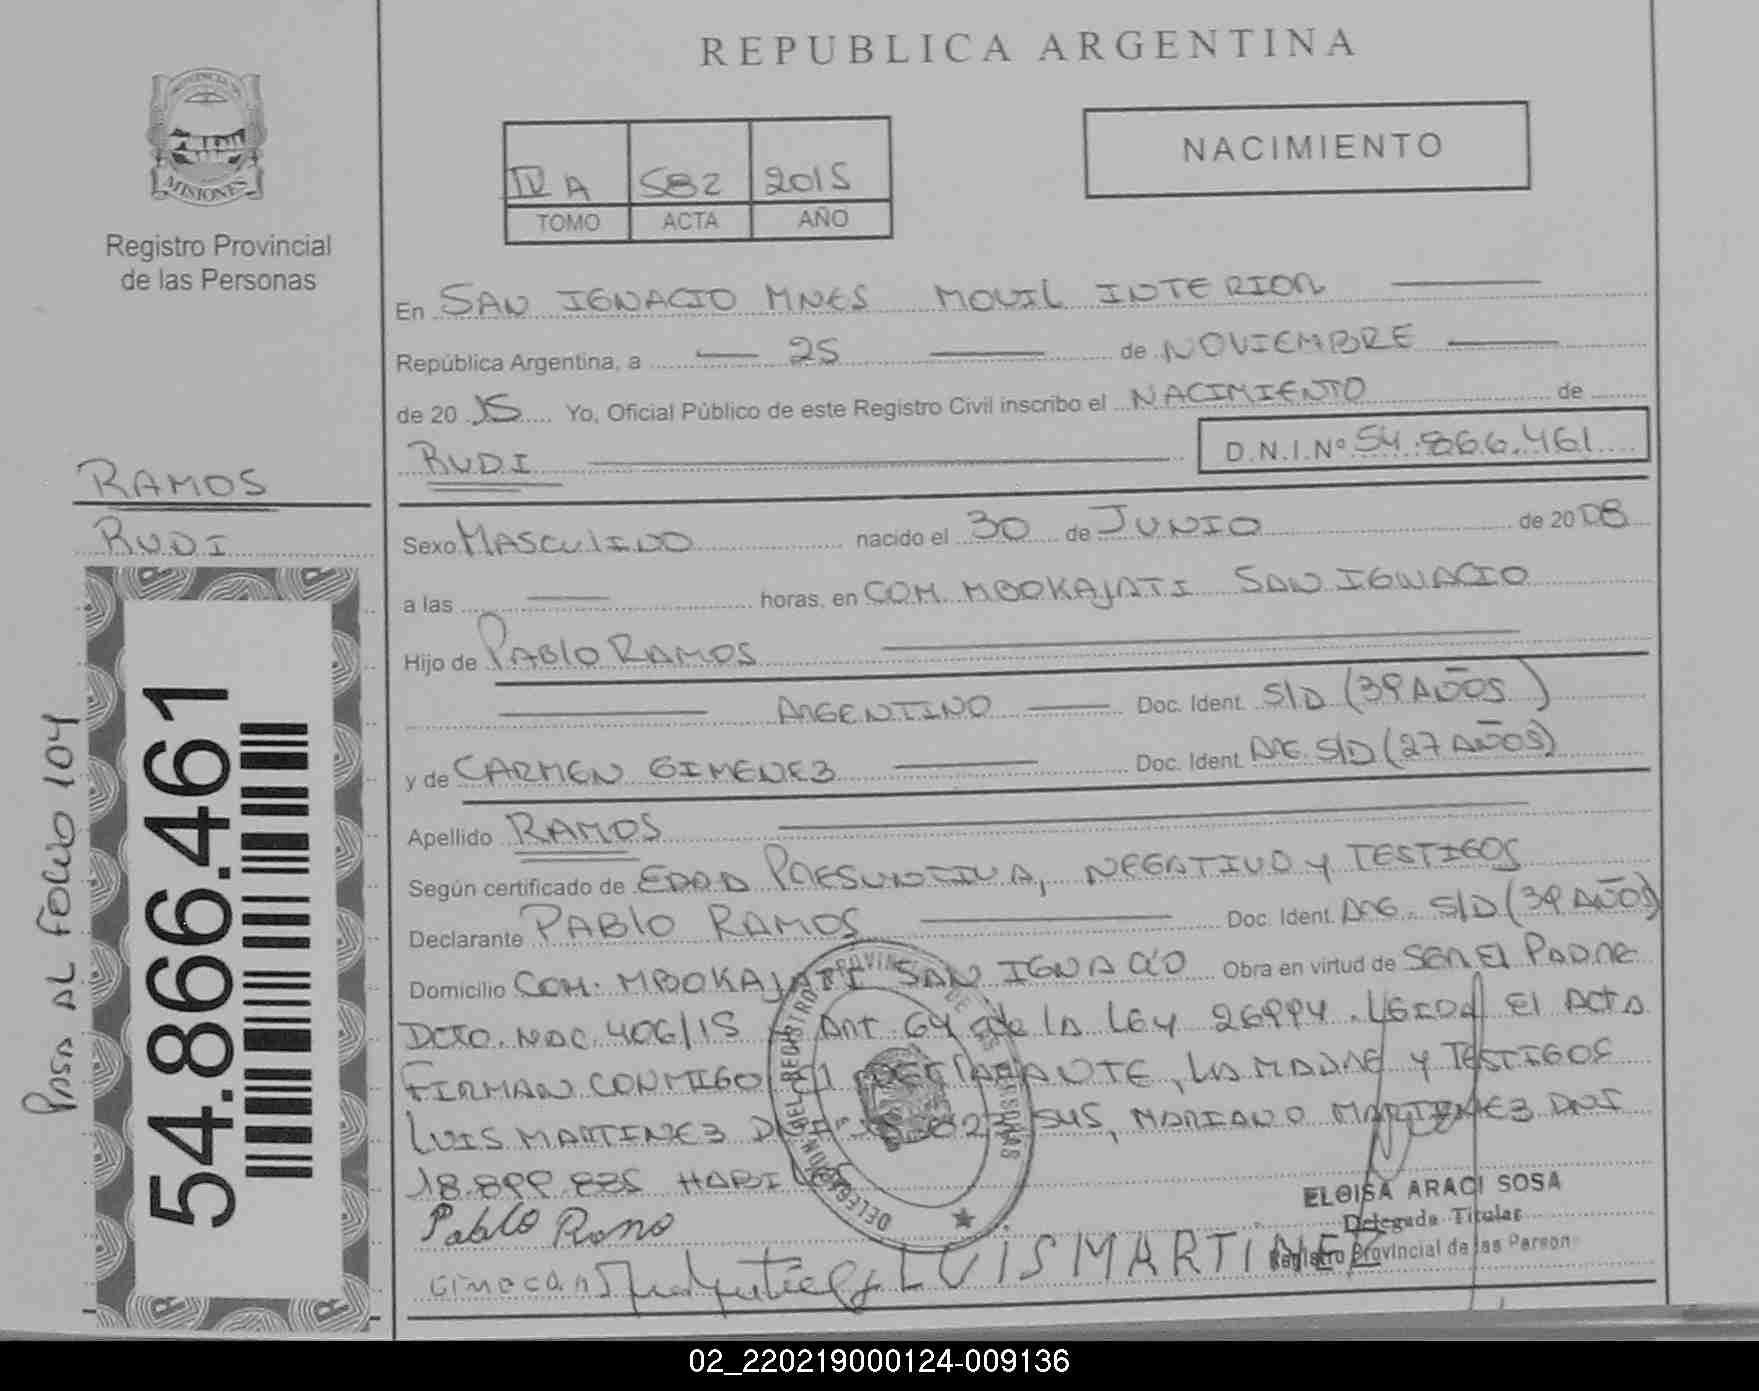 REPUBLICA ARGENTINA
PROVINCIA DE
MISIONES
Registro Provincial
de las Personas
NACIMIENTO
IV A 582 2015
TOMO ACTA AÑO
En SAN IGNACIO MNES MOVIL INTERIOR
República Argentina, a 25 de NOVIEMBRE
de 20 15 Yo, Oficial Público de este Registro Civil inscribo el NACIMIENTO de
RUDI D.N.I.Nº 54.866.461
RAMOS
RUDI
54.866.461
PASA AL FOLIO 104
Sexo MASCULINO nacido el 30 de JUNIO de 20 08
a las horas, en COM. MBOKAJATI SAN IGNACIO
Hijo de PABLO RAMOS
ARGENTINO Doc. Ident. S/D (39 AÑOS)
y de CARMEN GIMENEZ Doc. Ident. ARG. S/D (27 AÑOS)
Apellido RAMOS
Según certificado de EDAD PRESUNTIVA, NEGATIVO y TESTIGOS
Declarante PABLO RAMOS Doc. Ident. ARG. S/D (39 AÑOS)
Domicilio COM. MBOKAJATI SAN IGNACIO Obra en virtud de SER EL PADRE
DCTO. NAC. 406/15 Art 64 de la LEY 26994. LEIDA El ACTA
FIRMAN CONMIGO El DECLARANTE, LA MADRE y TESTIGOS
LUIS MARTINEZ 545, MARIANO MARTINEZ DNI
18.899.835 HABILES
DELEGACION DEL REGISTRO PROVINCIAL DE LAS PERSONAS
Pablo Ramo
LUIS MARTINEZ
ELOISA ARACI SOSA
Delegada Titular
Registro Provincial de las Person
02_220219000124-009136